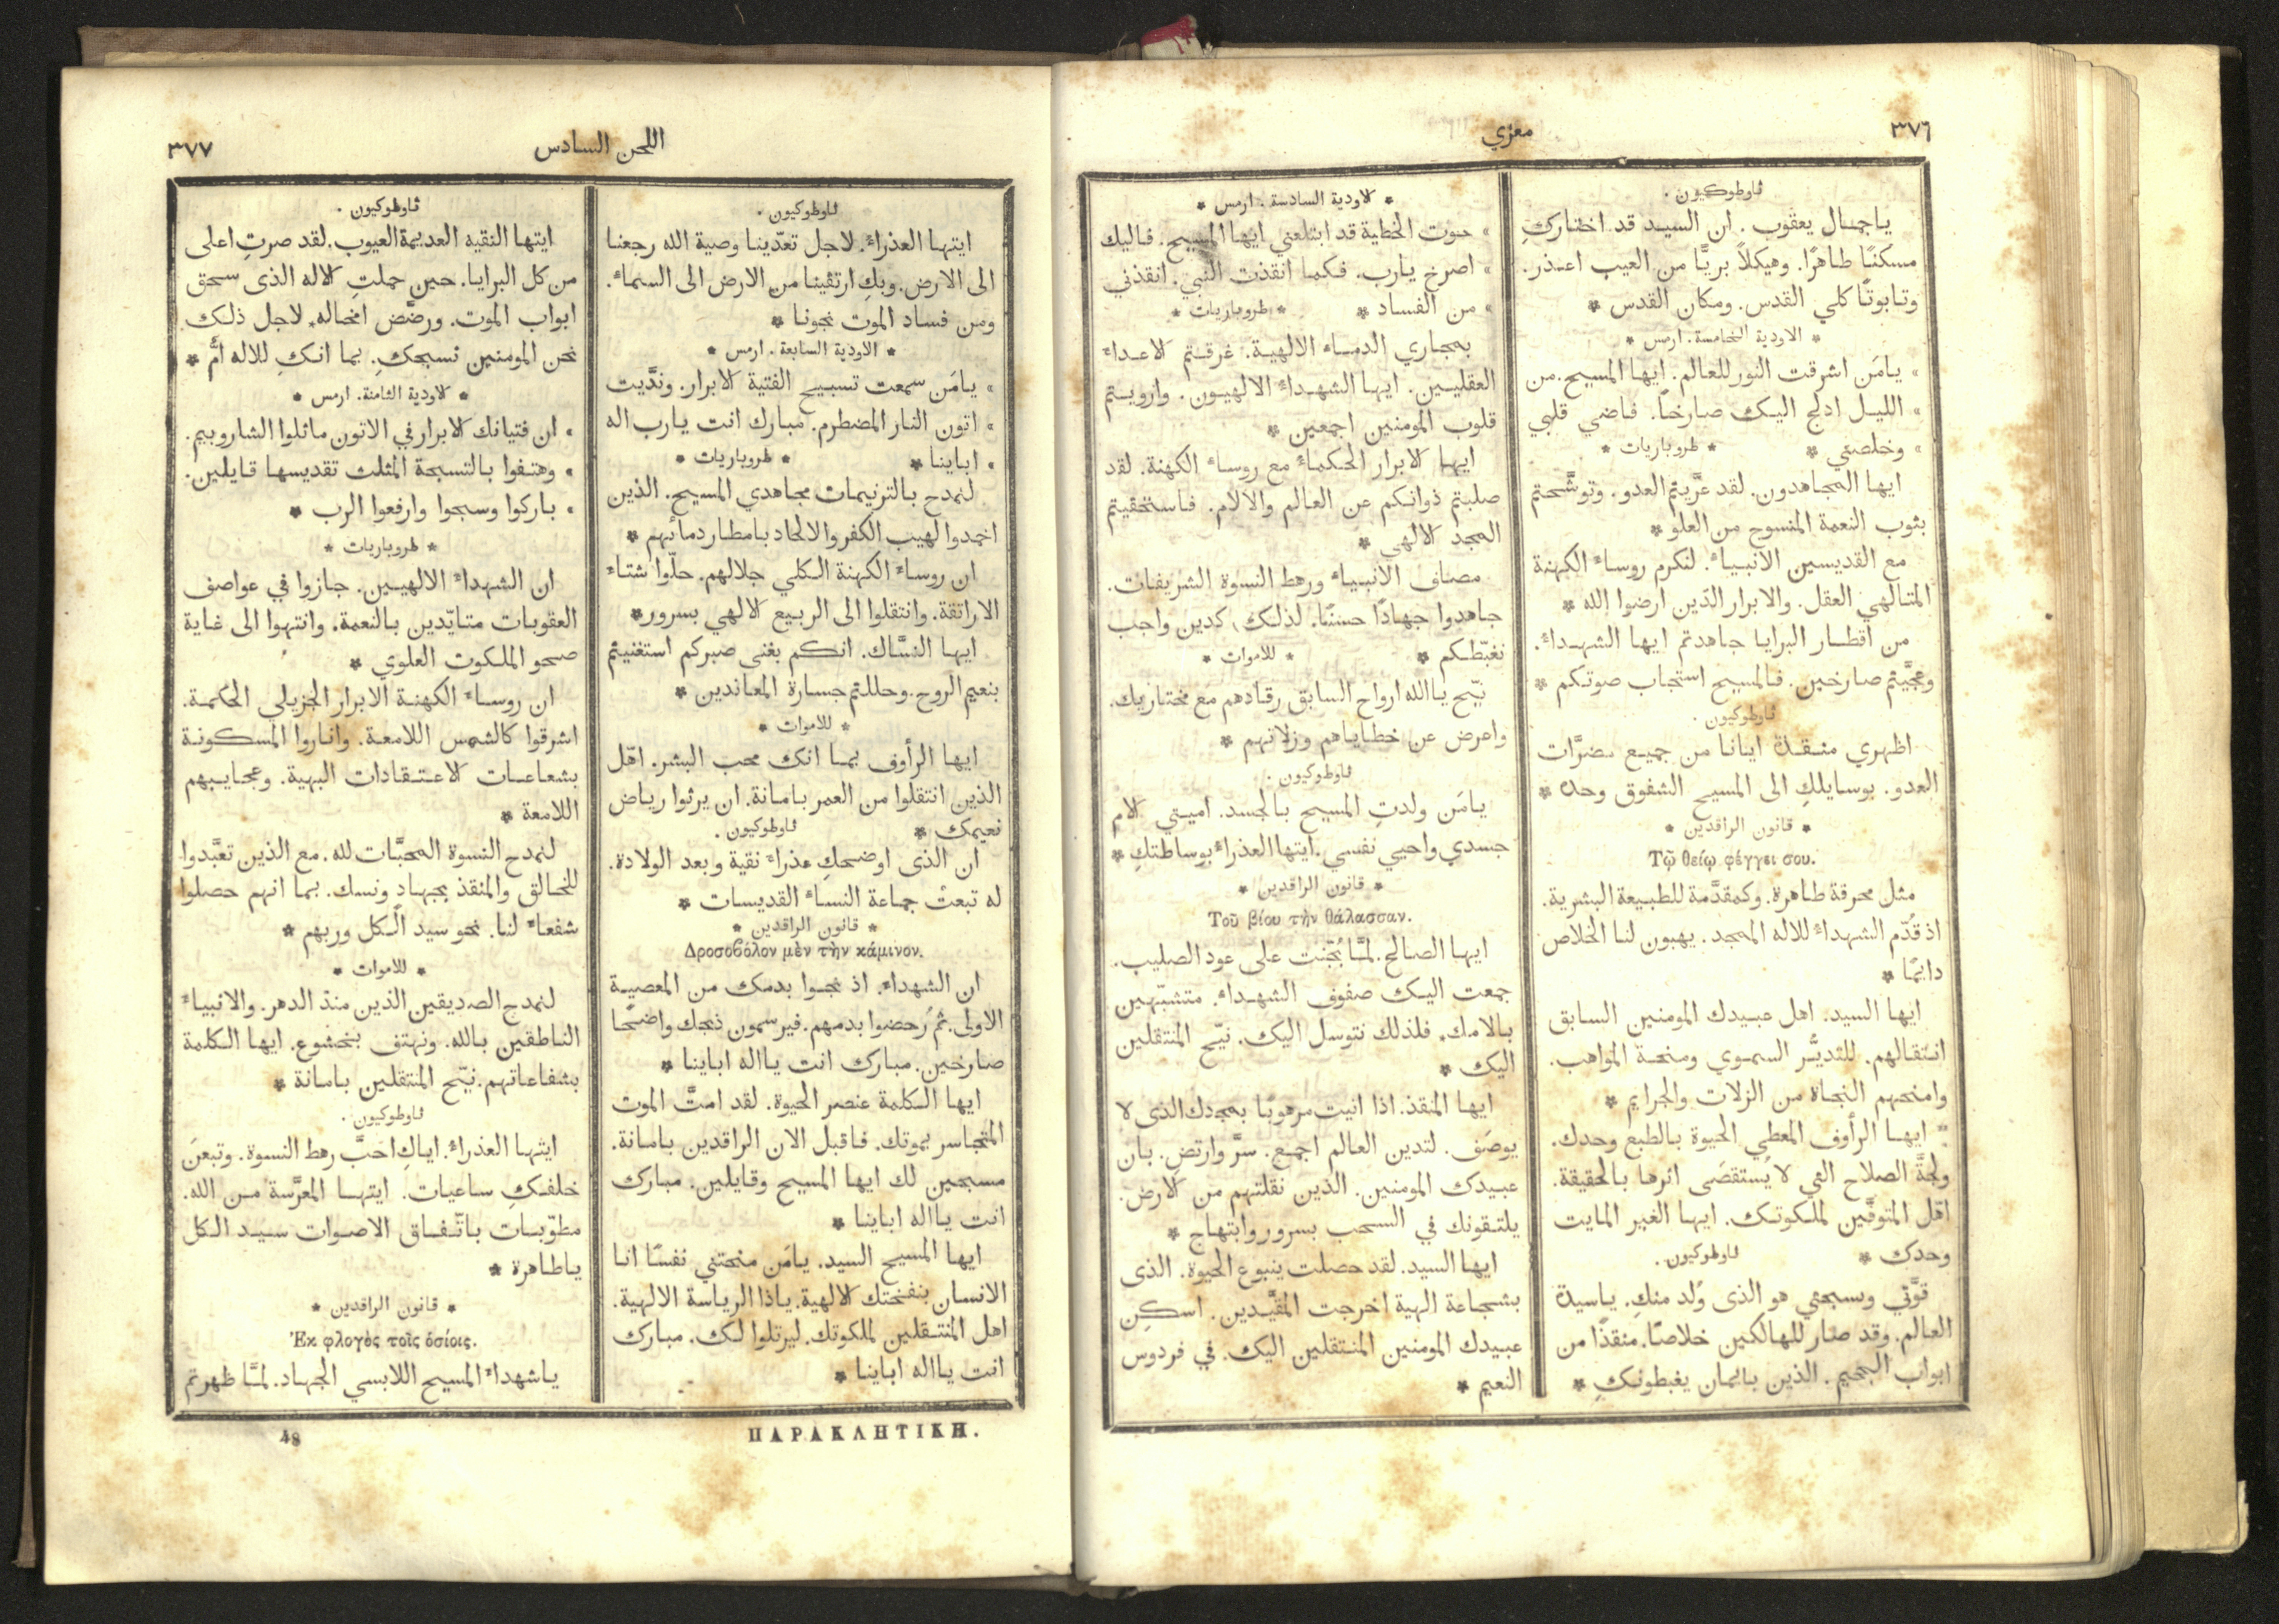 ٣٧٦
معزي
ثاوطوكيون.
ياجمال يعقوب. ان السيد قد اختاركِ
مسكنًا طاهرًا. وهيكلاً بريًّا من العيب اعذر.
وتابوتًا كلي القدس. ومكان القدس *
* الاودية الخامسة. ارمس *
» يامَن اشرقت النور للعالم. ايها المسيح. من
» الليل ادلج اليك صارخًا. فاضي قلبي
» وخلصني * * طروباريات *
ايها المجاهدون. لقد عرَّيتم العدو. وتوشَّحتم
بثوب النعمة المنسوج من العلو *
مع القديسين الانبياء. لنكرم روساء الكهنة
المتالهي العقل. والابرار الذين ارضوا الله *
من اقطار البرايا جاهدتم ايها الشهداء.
وعجَّيتم صارخين. فالمسيح استجاب صوتكم *
ثاوطوكيون.
اظهري منقذة ايانا من جميع مضرَّات
العدو. بوسايلكِ الى المسيح الشفوق وحده *
* قانون الراقدين *
Τῷ θείῳ φέγγει σου.
مثل محرقة طاهرة. وكمقدَّمة للطبيعة البشرية.
اذ قُدّم الشهداء للاله الممجد. يهبون لنا الخلاص
دايمًا *
ايها السيد. اهل عبيدك المومنين السابق
انتقالهم. للتديُّر السموي ومنحة المواهب.
وامنحهم النجاة من الزلات والجرايم *
ايها الرأوف المعطي الحيوة بالطبع وحدك.
ولجَّة الصلاح التي لا يُستقصَى اثرها بالحقيقة.
اقل المتوفَّين لملكوتك. ايها الغير المايت
وحدك * ثاوطوكيون.
قوَّتي وتسبحتي هو الذى وُلد منكِ. ياسيدة
العالم. وقد صار للهالكين خلاصًا. منقذًا من
ابواب الجحيم. الذين بايمان يغبطونكِ *
* الاودية السادسة. ارمس *
» حوت الخطية قد ابتلعني ايها المسيح. فاليك
» اصرخ يارب. فكما انقذت النبي. انقذني
» من الفساد * * طروباريات *
بمجاري الدماء الالهية. غرقتم الاعداء
العقليين. ايها الشهداء الالهيون. وارويتم
قلوب المومنين اجمعين *
ايها الابرار الحكماء مع روساء الكهنة. لقد
صلبتم ذواتكم عن العالم والالام. فاستحقيتم
المجد الالهي *
مصاف الانبياء ورهط النسوة الشريفات.
جاهدوا جهادًا حسنًا. لذلك، كدين واجب
نغبّطكم * * للاموات *
نيّح ياالله ارواح السابق رقادهم مع مختاريك.
واعرض عن خطاياهم وزلاتهم *
ثاوطوكيون.
يامَن ولدتِ المسيح بالجسد. اميتي الام
جسدي واحيي نفسي. ايتها العذراء بوساطتكِ *
* قانون الراقدين *
Τοῦ βίου τὴν θάλασσαν.
ايها الصالح. لمَّا ثُجّنت على عود الصليب.
جمعت اليك صفوف الشهداء. متشبّهين
بالامك. فلذلك نتوسل اليك. نيّح المنتقلين
اليك *
ايها المنقذ. اذا اتيت مرهوبًا بمجدك الذى لا
يوصَف. لتدين العالم اجمع. سرَّ وارتضِ. بان
عبيدك المومنين. الذين نقلتهم من الارض.
يلتقونك في السحب بسرور وابتهاج *
ايها السيد. لقد حصلت ينبوع الحيوة. الذى
بشجاعة الهية اخرجت المقيَّدين. اسكِن
عبيدك المومنين المنتقلين اليك. في فردوس
النعيم *
اللحن السادس
٣٧٧
ثاوطوكيون.
ايتها العذراء. لاجل تعدّينا وصية الله رجعنا
الى الارض. وبكِ ارتقينا من الارض الى السماء.
ومن فساد الموت نجونا *
* الاودية السابعة. ارمس *
» يامَن سمعت تسبيح الفتية الابرار. وندَّيت
» اتون النار المضطرم. مبارك انت يارب اله
» اباينا * * طروباريات *
لنمدح بالترنيمات مجاهدي المسيح. الذين
اخمدوا لهيب الكفر والالحاد بامطار دمائهم *
ان روساء الكهنة الكلي جلالهم. حلّوا شتاء
الاراتقة. وانتقلوا الى الربيع الالهي بسرور *
ايها النسَّاك. انكم بغنى صبركم استغنيتم
بنعيم الروح. وحللتم جسارة المعاندين *
* للاموات *
ايها الرأوف بما انك محب البشر. اهّل
الذين انتقلوا من العمر بامانة. ان يرثوا رياض
نعيمك * ثاوطوكيون.
ان الذى اوضحكِ عذراء نقية وبعد الولادة.
له تبعتْ جماعة النساء القديسات *
* قانون الراقدين *
Δροσοβόλον μὲν τὴν κάμινον.
ان الشهداء. اذ نجوا بدمك من المعصية
الاولى. ثم رُحضوا بدمهم. فيرسمون ذبحك واضحًا
صارخين. مبارك انت يااله اباينا *
ايها الكلمة عنصر الحيوة. لقد امتَّ الموت
المتجاسر بموتك. فاقبل الان الراقدين بامانة.
مسبحين لك ايها المسيح وقايلين. مبارك
انت يااله اباينا *
ايها المسيح السيد. يامَن منحتني نفسًا انا
الانسان بنفختك الالهية. ياذا الرياسة الالهية.
اهل المنتقلين لملكوتك. ليرتلوا لك. مبارك
انت يااله اباينا *
ثاوطوكيون.
ايتها النقيه العديمة العيوب. لقد صرتِ اعلى
من كل البرايا. حين حملتِ الاله الذى سحق
ابواب الموت. ورضَّض امخاله. لاجل ذلك
نحن المومنين نسبحكِ. بما انكِ للاله امٌّ *
* الاودية الثامنة. ارمس *
» ان فتيانك الابرار في الاتون ماثلوا الشاروبيم.
» وهتفوا بالتسبحة المثلث تقديسها قايلين.
» باركوا وسبحوا وارفعوا الرب *
* طروباريات *
ان الشهداء الالهيين. جازوا في عواصف
العقوبات متايّدين بالنعمة. وانتهوا الى غاية
صحو الملكوت العلوي *
ان روساء الكهنة الابرار الجزيلي الحكمة.
اشرقوا كالشمس اللامعة. واناروا المسكونة
بشعاعات الاعتقادات البهية. وعجايبهم
اللامعة *
لنمدح النسوة المحبَّات لله. مع الذين تعبَّدوا
للخالق والمنقذ بجهادٍ ونسك. بما انهم حصلوا
شفعاء لنا. نحو سيد الكل وربهم *
* للاموات *
لنمدح الصديقين الذين منذ الدهر. والانبياء
الناطقين بالله. ونهتف بخشوع. ايها الكلمة
بشفاعاتهم. نيّح المنتقلين بامانة *
ثاوطوكيون.
ايتها العذراء. اياكِ احَبَّ رهط النسوة. وتبعنَ
خلفكِ ساعيات. ايتها المعرَّسة من الله.
مطوّبات باتّفاق الاصوات سيد الكل
ياطاهرة *
* قانون الراقدين *
Ἐκ φλογὸς τοῖς ὁσίοις.
ياشهداء المسيح اللابسي الجهاد. لمَّا ظهرتم
ΠΑΡΑΚΛΗΤΙΚΗ.
48